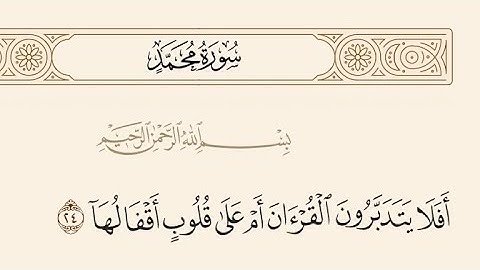 سُورَةُ مُحَمَّدٍ
بِسْمِ ٱللَّهِ ٱلرَّحْمَٰنِ ٱلرَّحِيمِ
أَفَلَا يَتَدَبَّرُونَ ٱلْقُرْءَانَ أَمْ عَلَىٰ قُلُوبٍ أَقْفَالُهَآ ٢٤